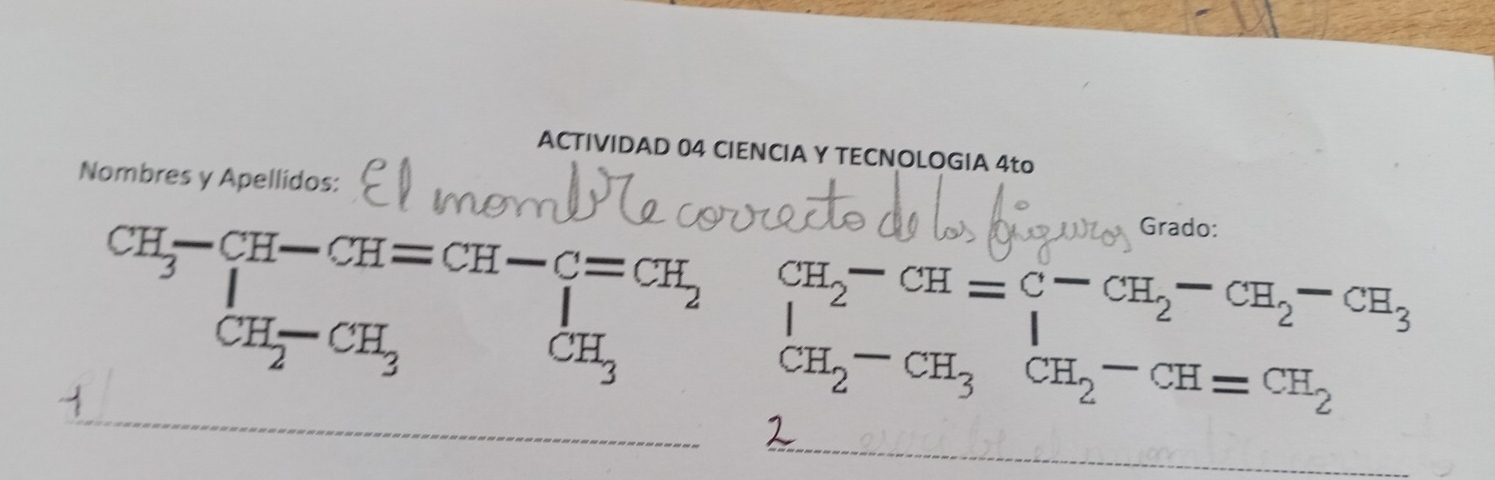 ACTIVIDAD 04 CIENCIA Y TECNOLOGIA 4to
Nombres y Apellidos: El nombre correcto de las figuras Grado:
CH₃—CH—CH=CH—C=CH₂
|
|
CH₂—CH₃
CH₃
1
CH₂—CH=C—CH₂—CH₂—CH₃
|
|
CH₂—CH₃
CH₂—CH=CH₂
2